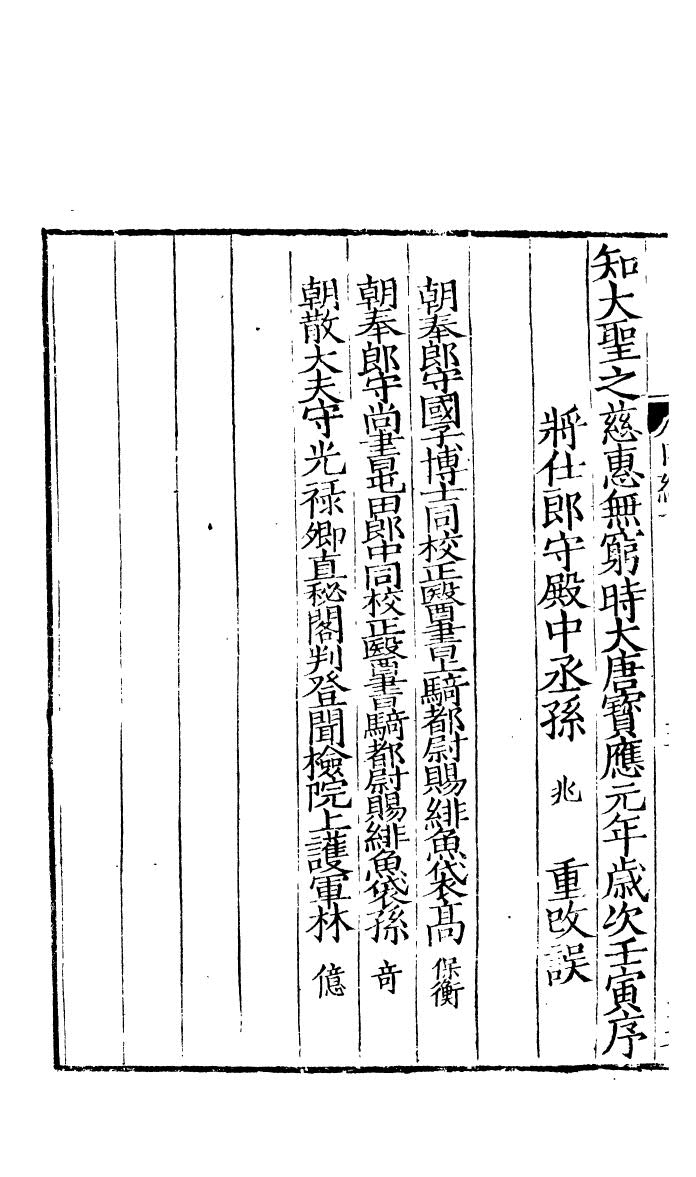 知大聖之慈惠無窮時大唐寶應元年歲次壬寅序
將仕郎守殿中丞孫 兆 重改誤
朝奉郎守國子博士同校正醫書上騎都尉賜緋魚袋高 保衡
朝奉郎守尚書屯田郎中同校正醫書騎都尉賜緋魚袋孫 奇
朝散大夫守光祿卿直秘閣判登聞檢院上護軍林 億